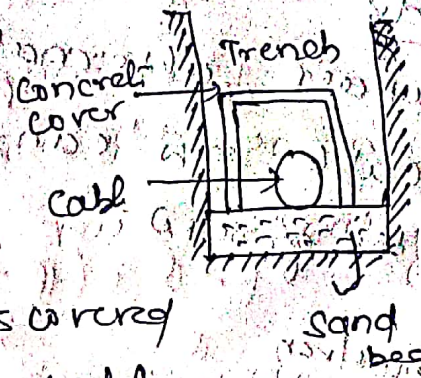 Trench
Concrete
cover
Cabl
s covered
Sand
bed